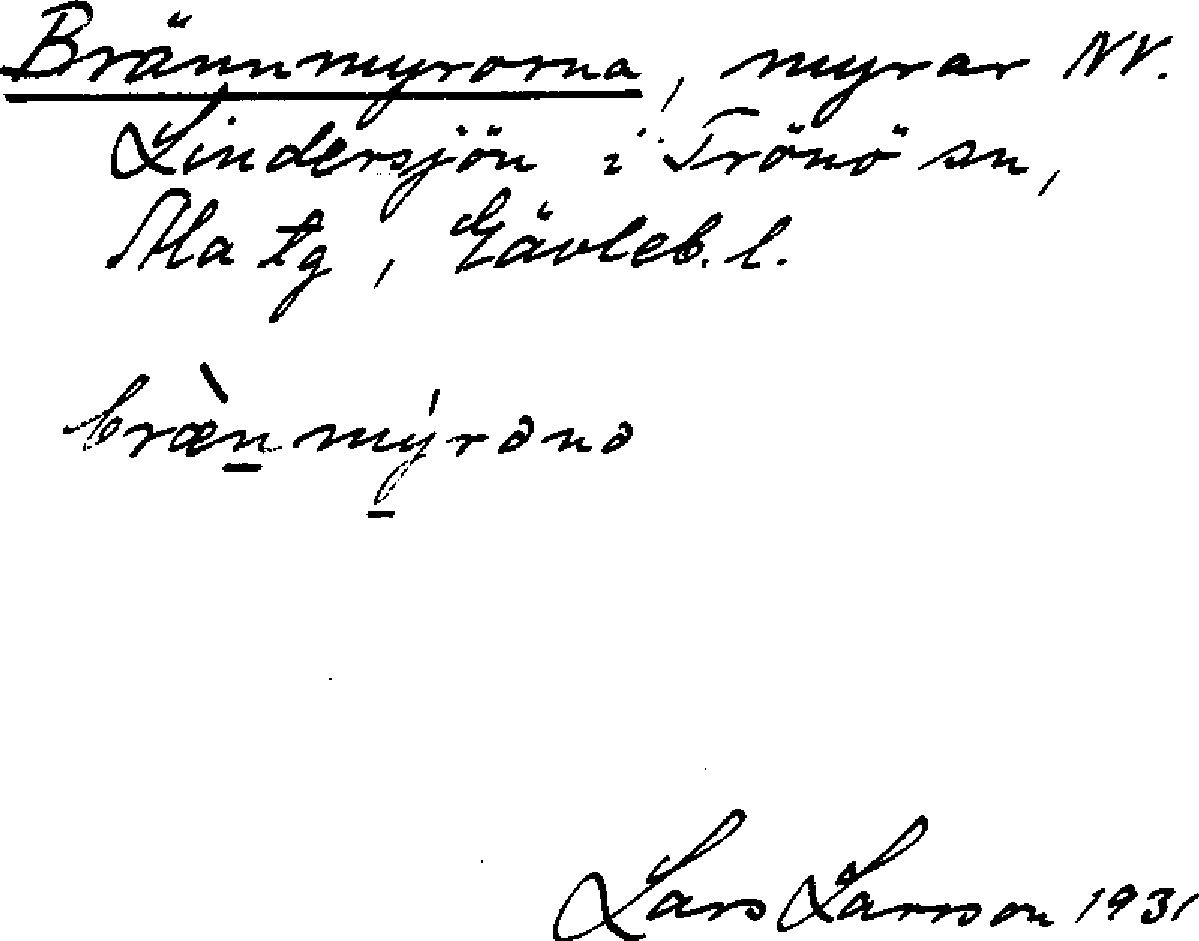 Brännmyrorna, myrar NV.
Lindersjön i Trönö sn,
Ala tg, Gävleb. l.
bræ̀n̠mý̠rönö
Lars Larsson 1931